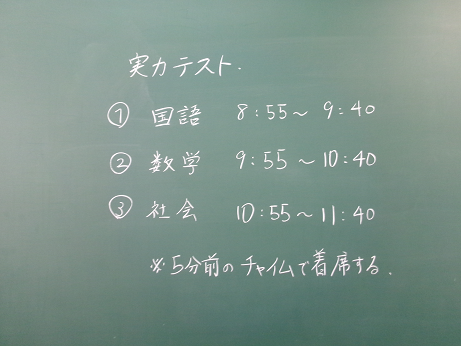 実力テスト.
① 国語 8:55～9:40
② 数学 9:55～10:40
③ 社会 10:55～11:40
※5分前のチャイムで着席する.